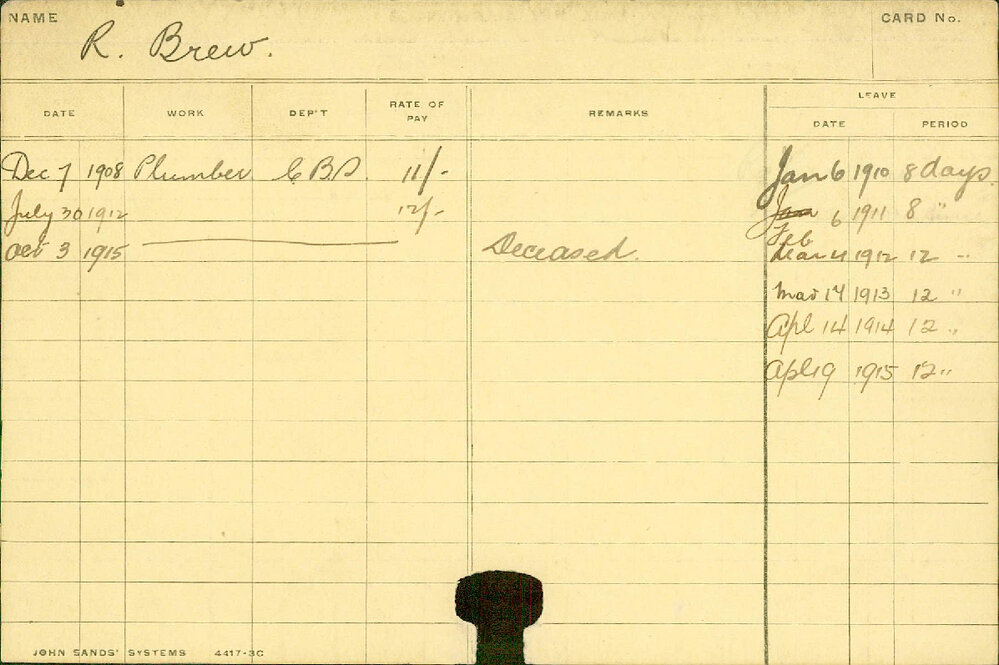 NAME CARD No.
R. Brew.
LEAVE
DATE WORK DEP'T RATE OF PAY REMARKS DATE PERIOD
Dec 7 1908 Plumber C.B.D. 11/- Jan 6 1910 8 days
July 30 1912 12/- Jan Feb 6 1911 8 "
Oct 3 1915 Deceased. Mar 4 1912 12 "
Mar 14 1913 12 "
Apl 14 1914 12 "
Apl 19 1915 12 "
JOHN SANDS' SYSTEMS 4417-3C